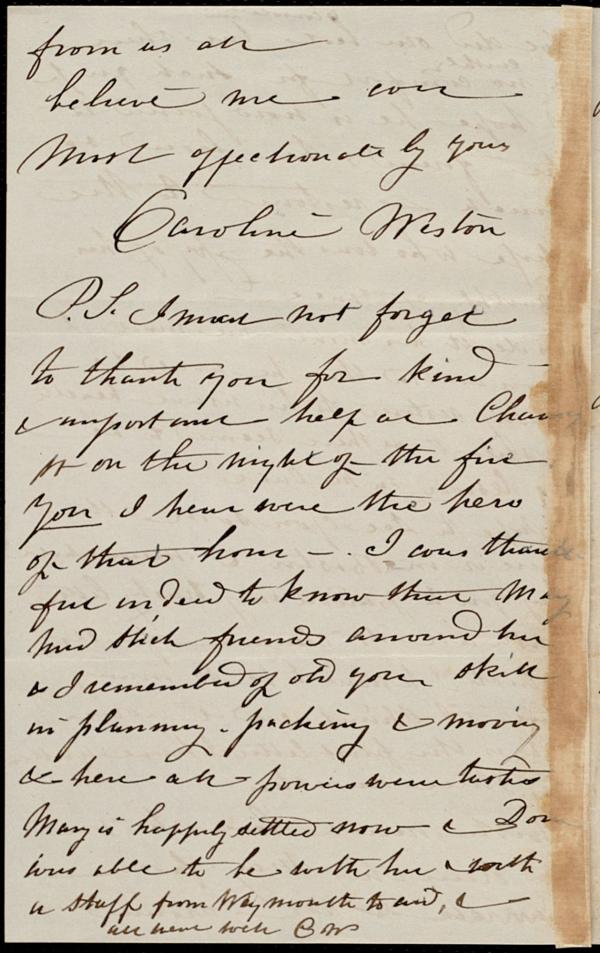 from us all
believe me ever
Most affectionately yours
Caroline Weston
P.S. I must not forget
to thank you for kind
& important help at Chauncy
St on the night of the fire
You I hear were the hero
of that hour —. I was thank
ful indeed to know that Mary
had such friends around her
& I remembered of old your skill
in planning, packing & moving
& here all powers were tasked
Mary is happily settled now &
was able to be with her & with
a staff from Weymouth to aid, &
all went well CW